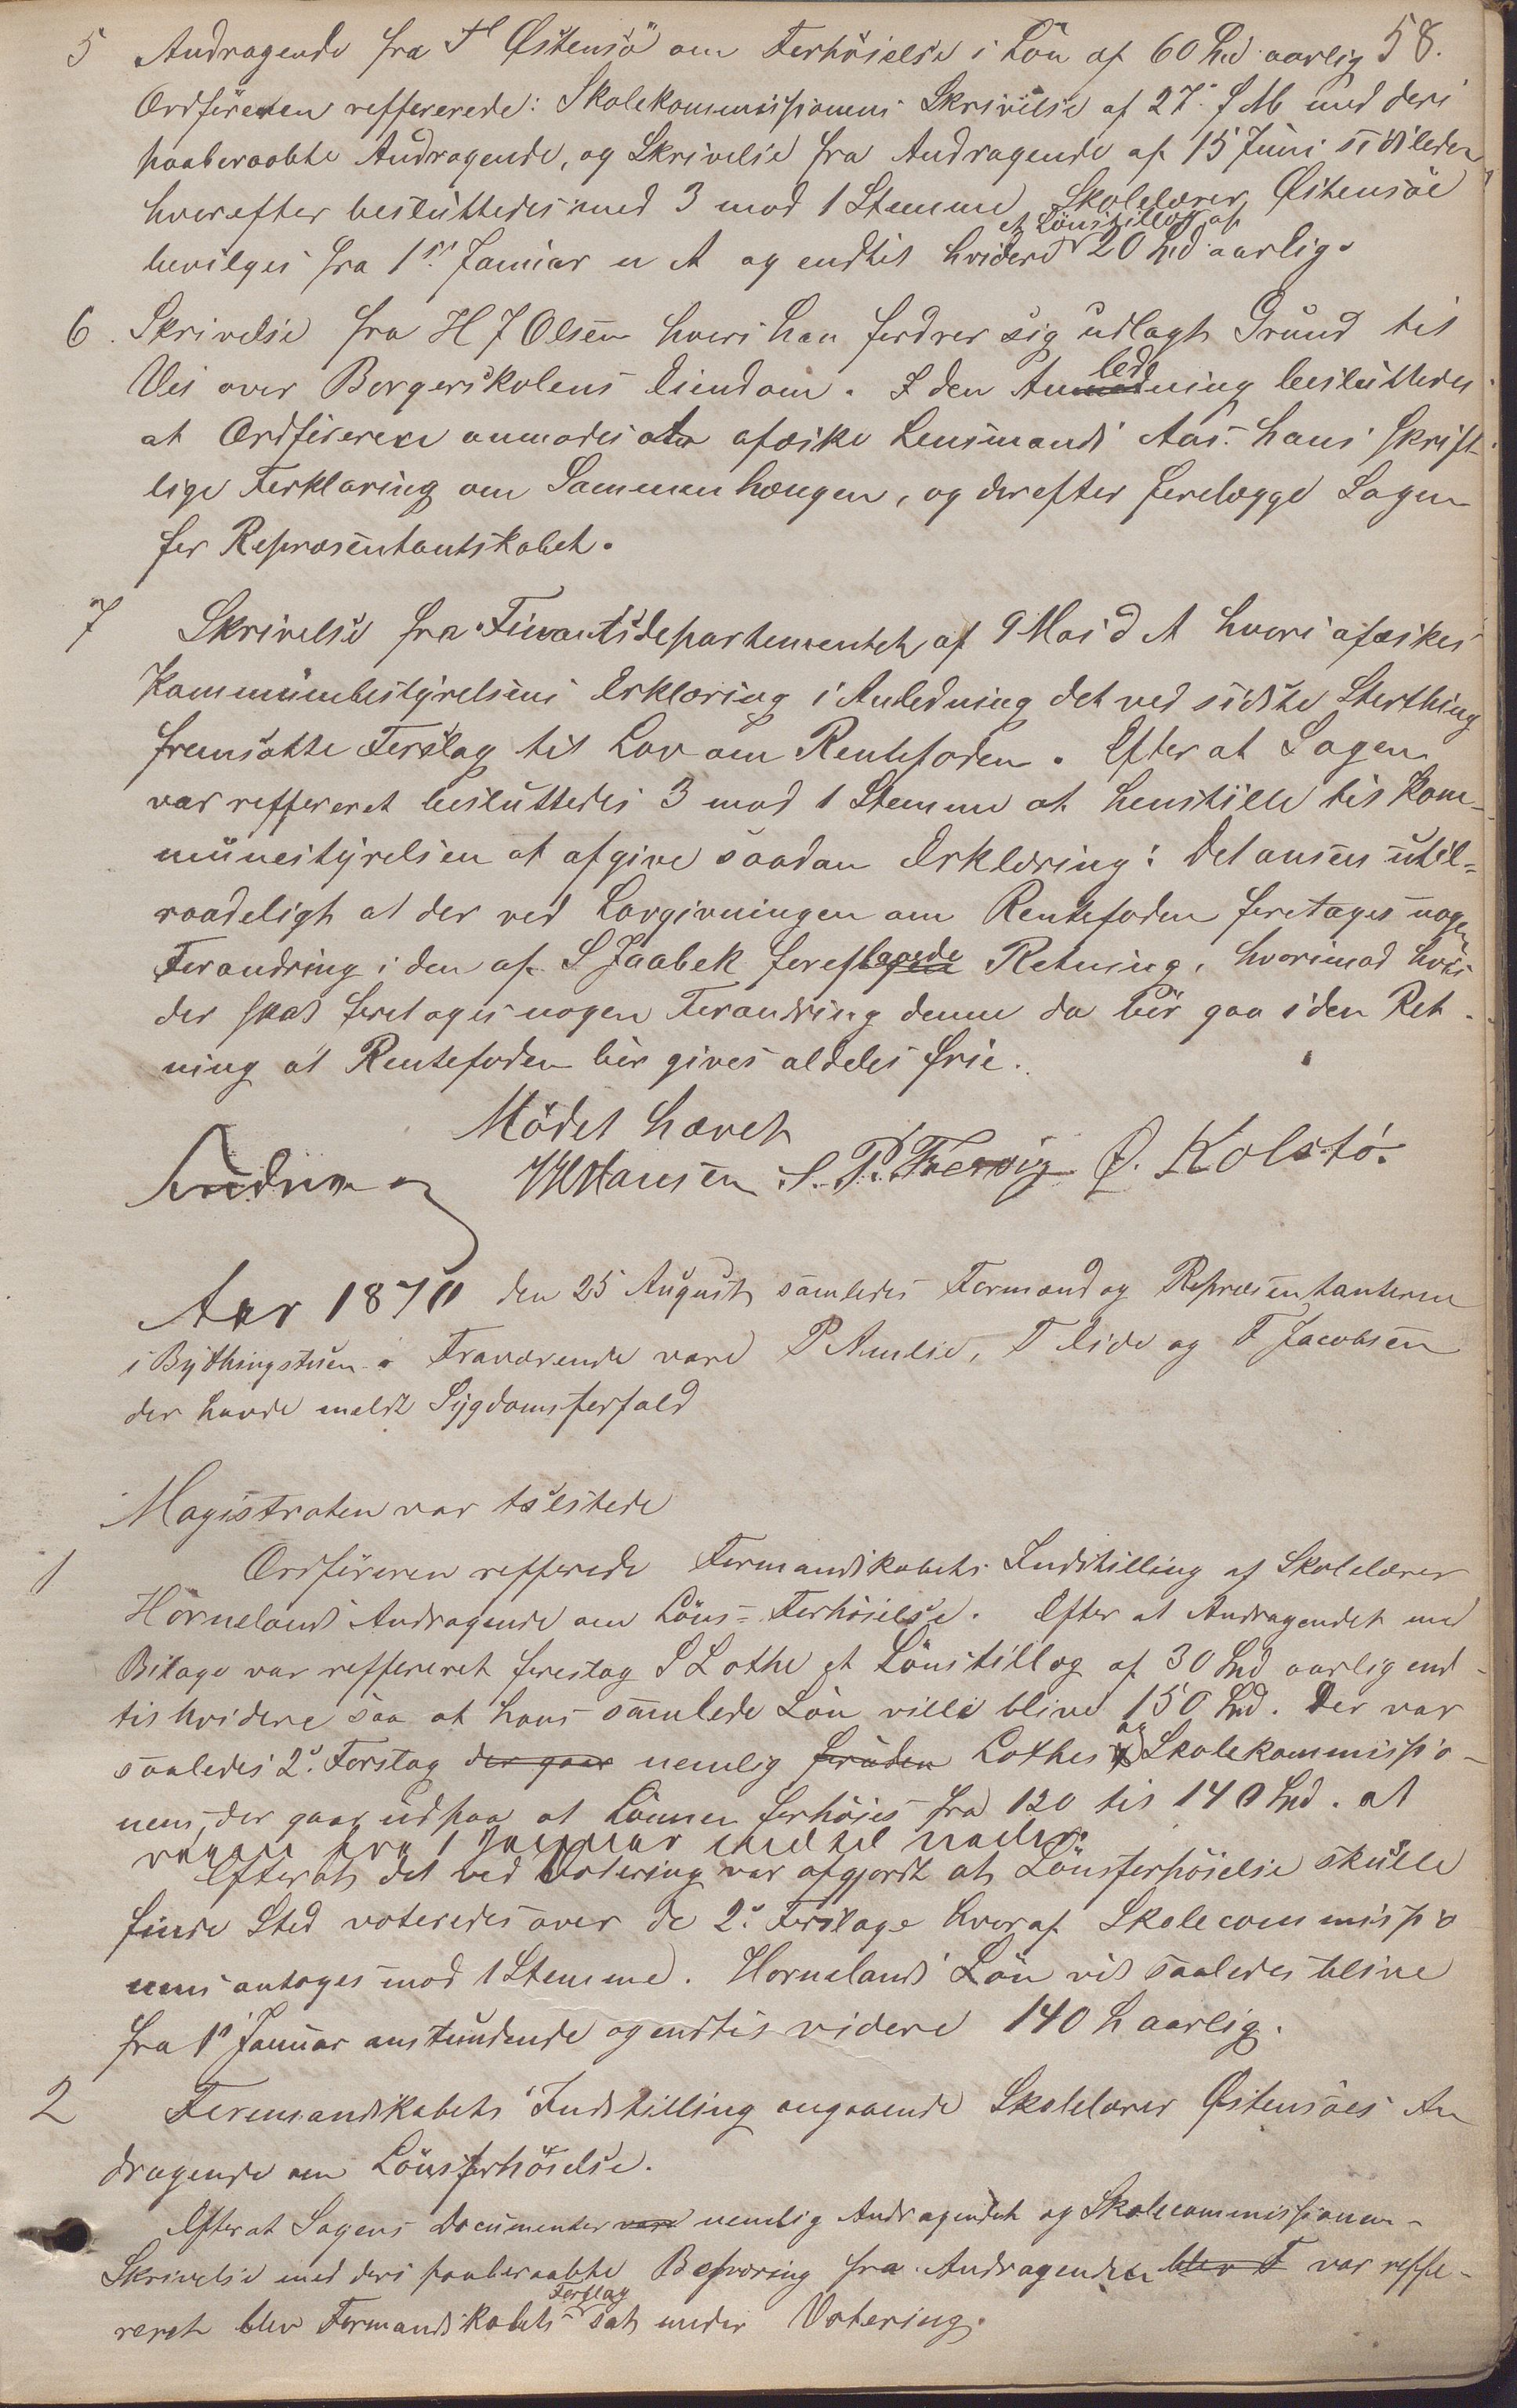 58.
5 Andragende fra T Østensö om Forhöielse i Lön af 60 Spd aarlig
Ordföreren reffererede: Skolekommissionens Skrivelse af 27 f M med deri
paaberaabte Andragende, og Skrivelse fra Andragende af 15 Juni sidstleden
hvorefter besluttedes med 3 mod 1 Stemme Skolelærer Østensöe
et Lönstillæg af
bevilges fra 1ste Januar n A og indtil hvidere 20 Spd aarlig.
6. Skrivelse fra H J Olsen hvori han fordrer sig udlagt Grund til
Vei over Borgerskolens Eiendom. I den Anledning besluttedes
at Ordföreren anmodes om at afæske Lensmand Aas. hans skrift-
lige Forklaring om Sammenhængen, og derefter forelægge Sagen
for Repræsentantskabet.
7 Skrivelse fra Finantsdepartementet af 9 Mai d A hvori afæskes
Kommunebestyrelsens Erklæring i Anledning det ved sidste Storthing
fremsatte Forslag til Lov om Rentefoden. Efter at Sagen
var reffereret besluttedes 3 mod 1 Stemme at henstille til Kom-
munestyrelsen at afgive saadan Erklæring: Det ansees util-
raadeligt at der ved Lovgivningen om Rentefoden foretages nogen
Forandring i den af S Jaabek foreslagede Retning, hvorimod hvis
der skal foretages nogen Forandring denne da bör gaa i den Ret-
ning at Rentefoden bör gives aldeles frie.
Mödet hævet
Hansen S. P. Frorvig Ø. Kolstö.
Aar 1870 den 25 August samledes Formænd og Repræsentanterne
i Bythingstuen. Fraværende vare P Amlie, T Eide og T Jacobsen
der havde meldt Sygdomsforfald
Magistraten var tilstede
1 Ordföreren refferede Formandskabets Indstilling af Skolelærer
Hornelands Andragende om Löns-Forhöielse. Efter at Andragendet med
Bilage var reffereret foreslog S Lothe et Lönstillæg af 30 Spd aarlig ind-
til hvidere saa at hans samlede Lön ville blive 150 Spd. Der var
saaledes 2de Forslag der gaar nemlig foruden Lothes og Skolekommissio-
nens, der gaar ud paa at Lönnen forhöies fra 120 til 140 Spd. at
regne fra 1 Januar indtil videre.
Efterat det ved Votering var afgjordt at Lönsforhöielse skulle
finde Sted voteredes over de 2de Forslage hvoraf Skolecommissio
nens antoges mod 1 Stemme. Hornelands Lön vil saaledes blive
fra 1ste Januar anstundende og indtil videre 140 Spd aarlig.
2 Formandskabets Indstilling angaaende Skolelærer Østensöes An
dragende om Lönsforhöielse.
Efter at Sagens Documenter vare nemlig Andragendet og Skolecommissionen-
Skrivelse med deri paaberaabte Besværing fra Andragenden blev F var reffe-
Forslag
reret blev Formandskabets sat under Votering.